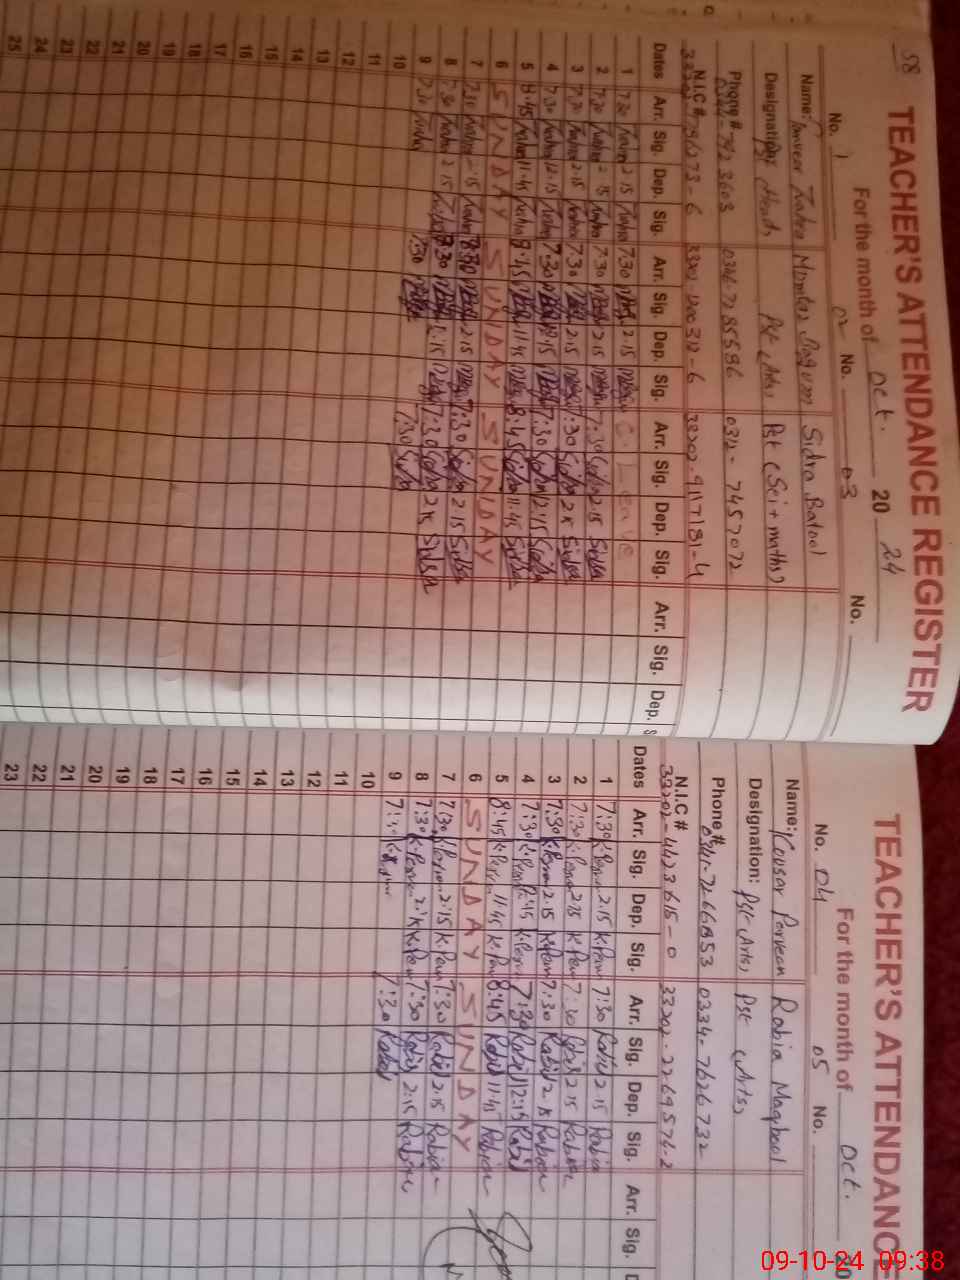 58
TEACHER'S ATTENDANCE REGISTER
For the month of Oct. 2024
No. 1 02 No. 03 No.
Name: Zahra Mumtaz Begum Sidra Batool
Designation: Pst (Arts) Pst (Sci + maths)
Phone # 0312-7457072
N.I.C #
Dates Arr. Sig. Dep. Sig. Arr. Sig. Dep. Sig. Arr. Sig. Dep. Sig. Arr. Sig. Dep.
1 7:30 Zahra 2:15 Zahra 7:30 2:15 C. Leave
2 7:30 Zahra 2:15 Zahra 7:30 2:15 7:30 Sidra 2:15 Sidra
3 7:30 Zahra 2:15 Zahra 7:30 2:15 7:30 Sidra 2:15 Sidra
4 7:30 Zahra 12:15 Zahra 7:30 12:15 7:30 Sidra 12:15 Sidra
5 8:45 Zahra 11:45 Zahra 8:45 11:45 8:45 Sidra 11:45 Sidra
6 SUNDAY SUNDAY SUNDAY
7 7:30 Zahra 2:15 Zahra 7:30 2:15 7:30 Sidra 2:15 Sidra
8 7:30 Zahra 2:15 Zahra 7:30 2:15 7:30 Sidra 2:15 Sidra
9 7:30 Zahra 7:30 7:30 Sidra
10
11
12
13
14
15
16
17
18
19
20
21
22
23
24
25
TEACHER'S ATTENDANC
For the month of Oct. 20
No. 04 05 No.
Name: Kousar Parveen Rabia Maqbool
Designation: Pst (Arts) Pst (Arts)
Phone # 0334-7626732
N.I.C # 33202-4423615-0 33202-2269576-2
Dates Arr. Sig. Dep. Sig. Arr. Sig. Dep. Sig. Arr. Sig.
1 7:30 2:15 7:30 Rabia 2:15 Rabia
2 7:30 2:15 7:30 Rabia 2:15 Rabia
3 7:30 2:15 7:30 Rabia 2:15 Rabia
4 7:30 12:15 7:30 Rabia 12:15 Rabia
5 8:45 11:45 8:45 Rabia 11:45 Rabia
6 SUNDAY SUNDAY
7 7:30 2:15 7:30 Rabia 2:15 Rabia
8 7:30 2:15 7:30 Rabia 2:15 Rabia
9 7:30 7:30 Rabia
10
11
12
13
14
15
16
17
18
19
20
21
22
23
09-10-24 09:38